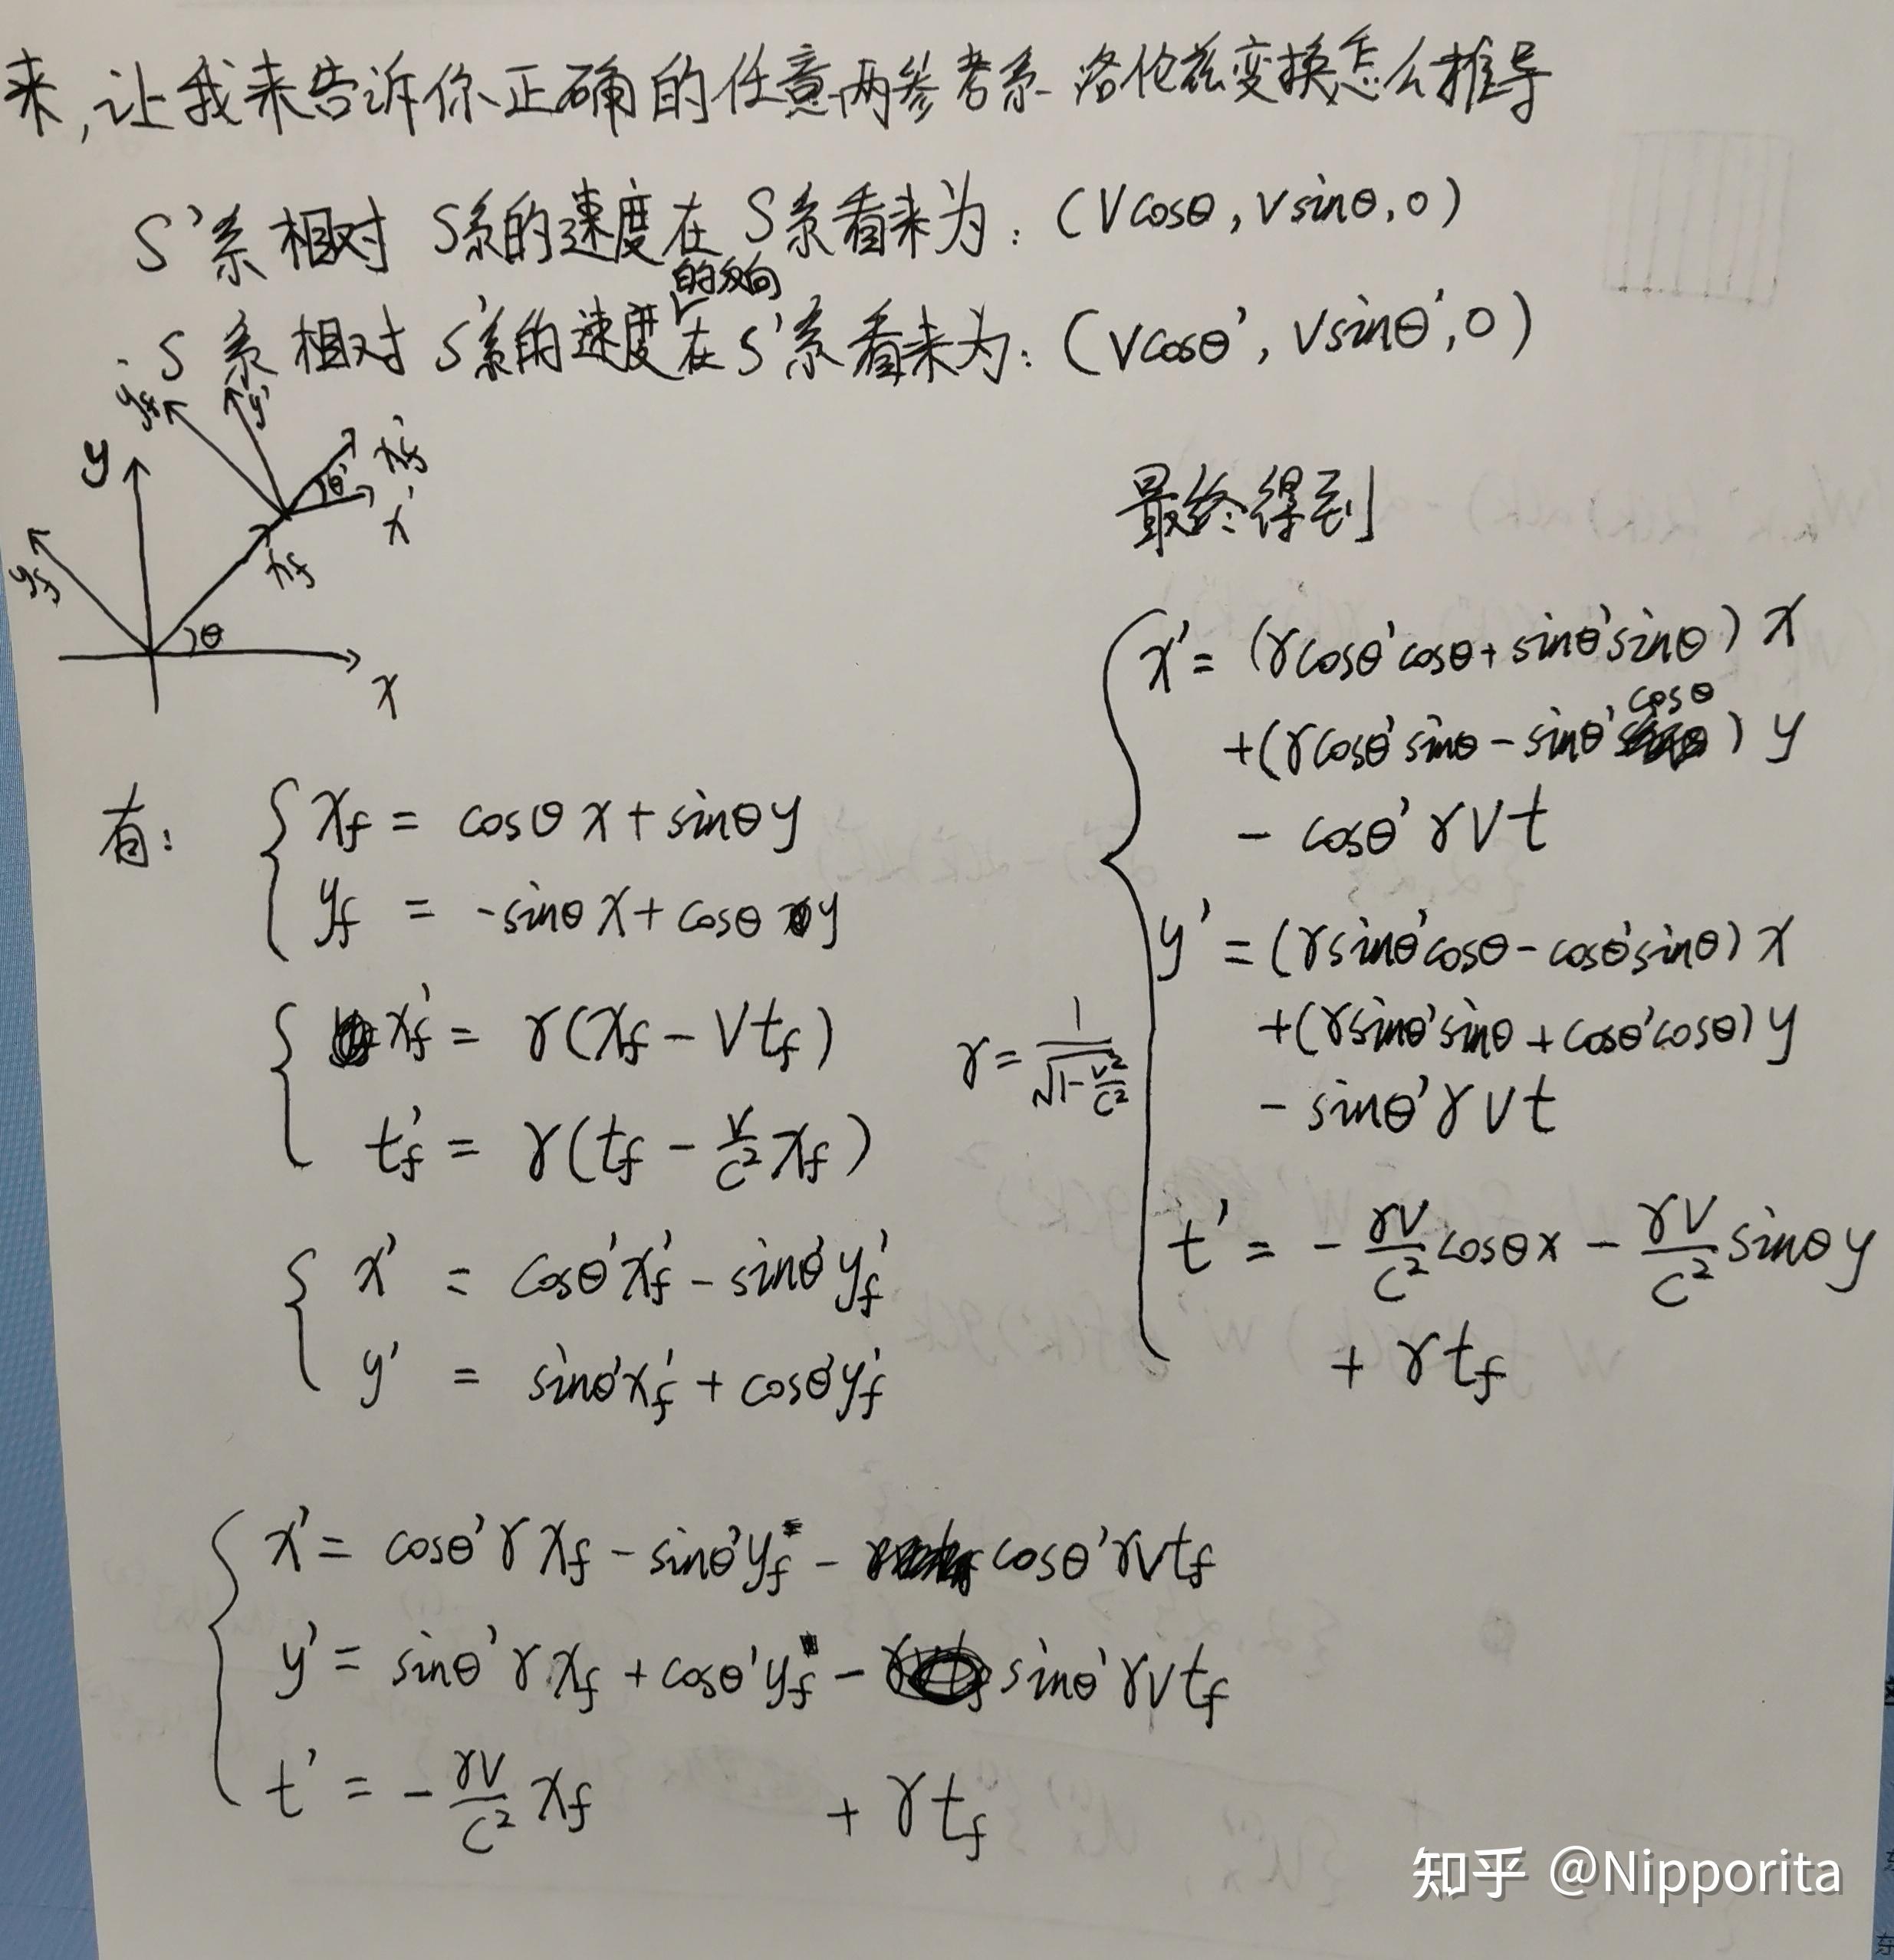 来,让我来告诉你正确的任意两参考系洛伦兹变换怎么推导
S'系相对S系的速度在S系看来为:(Vcosθ,Vsinθ,0)
的反向
S系相对S'系的速度在S'系看来为:(Vcosθ',Vsinθ',0)
y
y'
x_f'
θ'
x'
x_f
y_f
θ
x
有:
x_f = cosθx+sinθy
y_f = -sinθx+cosθy
x_f' = γ(x_f - Vt_f)
t_f' = γ(t_f - V/c² x_f)
γ = 1/√(1-v²/c²)
x' = cosθ'x_f' - sinθ'y_f'
y' = sinθ'x_f' + cosθ'y_f'
x' = cosθ'γx_f - sinθ'y_f - cosθ'γVt_f
y' = sinθ'γx_f + cosθ'y_f - sinθ'γVt_f
t' = -γV/c² x_f + γt_f
最终得到
x' = (γcosθ'cosθ+sinθ'sinθ)x
+(γcosθ'sinθ-sinθ'cosθ)y
- cosθ'γVt
y' = (γsinθ'cosθ-cosθ'sinθ)x
+(γsinθ'sinθ+cosθ'cosθ)y
- sinθ'γVt
t' = -γV/c² cosθx - γV/c² sinθy
+ γt_f
知乎 @Nipporita